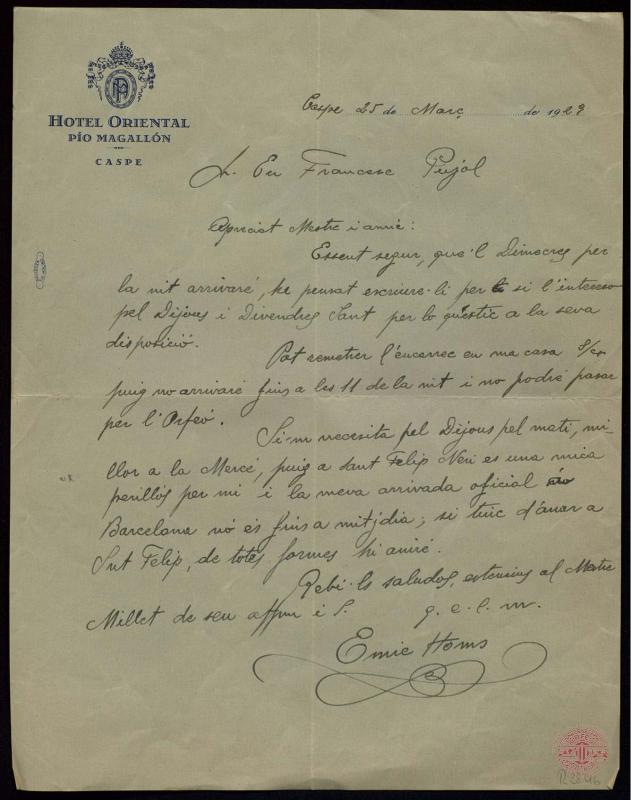 HOTEL ORIENTAL
PÍO MAGALLÓN
CASPE
Caspe 25 de Març de 1929
En Francesc Pujol
Apreciat Mestre i amic:
Essent segur, que'l Dimecres per
la nit arrivaré, he pensat escriure-li per si l'interesso
pel Dijous i Divendres Sant per lo qu'estic a la seva
disposició.
Pot remetrer l'encarrec en ma casa
puig no arrivaré fins a les 11 de la nit i no podré pasar
per l'Orfeó.
Si-m necesita pel Dijous pel matí, mi-
llor a la Mercé, puig a Sant Felip Neri es una mica
perillós per mi i la meva arrivada oficial
Barcelona nó és fins a mitjdia; si tinc d'anar a
Snt Felip, de totes formes hi aniré.
Rebi-ls saludos, extensius al Mestre
Millet de seu affm i S. q. e. l. m.
Emic Homs